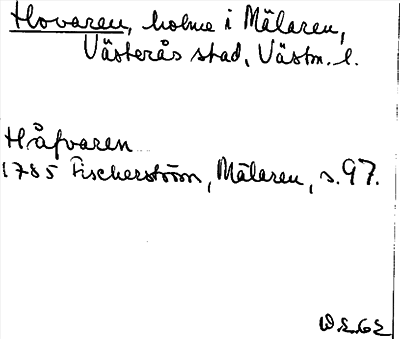 Hovaren, holme i Mälaren,
Västerås stad, Västm. l.
Håfvaren
1785 Fischerström, Mälaren, s. 97.